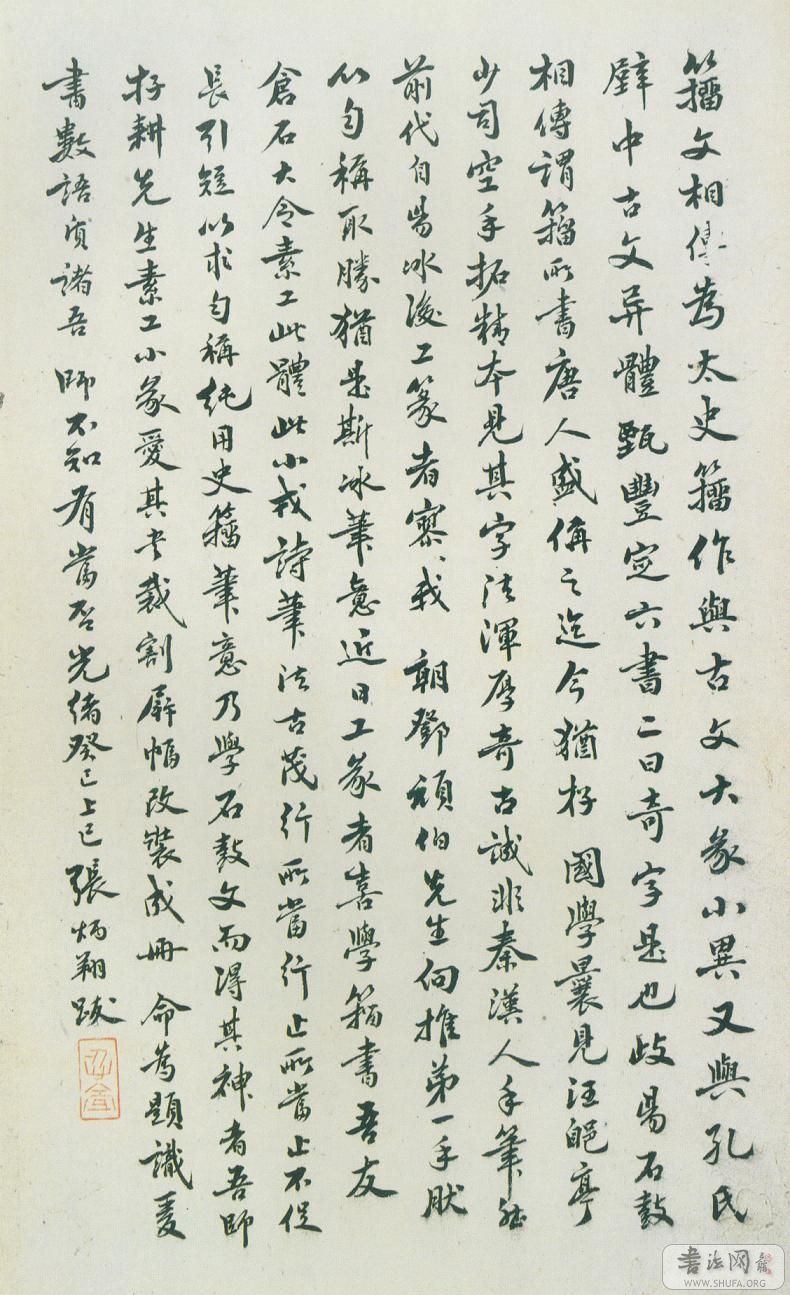 籀文相傳為太史籀作與古文大篆小異又與孔氏
壁中古文异體甄豐定六書二曰奇字是也歧陽石鼓
相傳謂籀所書唐人盛偁之迄今猶存國學曩見汪郋亭
少司空手拓精本見其字法渾厚奇古誠非秦漢人手筆能
前代自陽冰後工篆者寥寥我朝鄧頑伯先生向推第一手肰
以勻稱取勝猶是斯冰筆意近日工篆者喜學籀書吾友
倉石大令素工此體此小戎詩筆法古茂行所當行止所當止不促
長引短以求勻稱純用史籀筆意乃學石鼓文而得其神者吾師
存耕先生素工小篆愛其書裁割屏幅改裝成冊命為題識爰
書數語質諸吾師不知有當否光緒癸巳上巳張炳翔跋
書法网
WWW.SHUFA.ORG